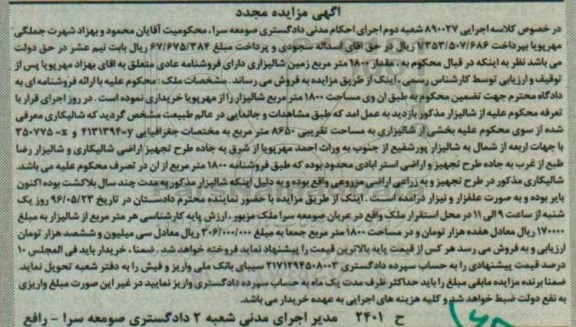 آگهی مزایده مجدد
در خصوص کلاسه اجرایی ۸۹۰۰۲۷ شعبه دوم اجرای احکام مدنی دادگستری صومعه سرا ، محکومیت آقایان محمود و بهزاد شهرت جملگی
مهرپویا بپرداخت ۱/۳۵۳/۵۰۷/۶۸۶ ریال در حق آقای اسداله سجودی و پرداخت مبلغ ۶۷/۶۷۵/۳۸۴ ریال بابت نیم عشر در حق دولت
می باشد نظر به اینکه در قبال محکوم به ، مقدار ۱۸۰۰ متر زمین شالیزاری دارای فروشنامه عادی متعلق به آقای بهزاد مهرپویا پس از
توقیف و ارزیابی توسط کارشناس رسمی ، اینک از طریق مزایده به فروش می رساند . مشخصات ملک : محکوم علیه با ارائه فروشنامه ای به
دادگاه محترم جهت تضمین محکوم به طبق آن وی مساحت ۱۸۰۰ متر مربع شالیزار را از مهرپویا خریداری نموده است . در روز اجرای قرار با
تعرفه محکوم علیه از شالیزار مذکور بازدید به عمل آمد که طبق مشاهدات و جانمایی در عالم طبیعت مشخص گردید که شالیکاری معرفی
شده از سوی محکوم علیه بخشی از شالیزاری به مساحت تقریبی ۸۶۵۰ متر مربع به مختصات جغرافیایی y=۴۱۳۱۳۹۴ و x=۳۵۰۷۷۵
با جهات اربعه از شمال به شالیزار پورشفیع از جنوب به وراث احمد مهرپویا از شرق به جاده طرح تجهیز اراضی شالیکاری و شالیزار رضا
طبع از غرب به جاده طرح تجهیز و اراضی استر ابادی محدود بوده که طبق فروشنامه ۱۸۰۰ متر مربع از آن در تصرف محکوم علیه می باشد.
شالیکاری مذکور در طرح تجهیز و به زراعی اراضی مزروعی واقع بوده و به دلیل اینکه شالیزار مذکور به مدت چند سال بلاکشت بوده اکنون
بایر بوده و به صورت علفزار و نیزار درآمده است . اینک از طریق مزایده با حضور نماینده محترم دادستان در تاریخ ۹۶/۰۵/۲۳ روز یک
شنبه از ساعت ۹ الی ۱۱ در محل استقرار ملک واقع در عربان صومعه سرا ملک مزبور ، ارزش پایه کارشناسی هر متر مربع از شالیزار به مبلغ
۱۷۰۰۰۰ ریال معادل هفده هزار تومان و در مساحت ۱۸۰۰ متر مربع جمعا به مبلغ ۳۰۶/۰۰۰/۰۰۰ ریال معادل سی میلیون و ششصد هزار تومان
ارزیابی و به فروش می رسد هر کس از قیمت پایه بالاترین قیمت را پیشنهاد نماید فروخته خواهد شد . ضمنا ، خریدار باید فی المجلس ۱۰
درصد قیمت پیشنهادی را به حساب سپرده دادگستری ۲۱۷۱۲۹۴۵۰۸۰۰۳ سیبای بانک ملی واریز و فیش را به دفتر شعبه تحویل نماید.
ضمنا برنده مزایده مابقی مبلغ را باید حداکثر ظرف مدت یک ماه به حساب سپرده دادگستری واریز نمایید در غیر این صورت مبلغ واریزی
به نفع دولت ضبط خواهد شد و کلیه هزینه های اجرایی به عهده خریدار می باشد.
ح ۲۴۰۱ مدیر اجرای مدنی شعبه ۲ دادگستری صومعه سرا - رافع